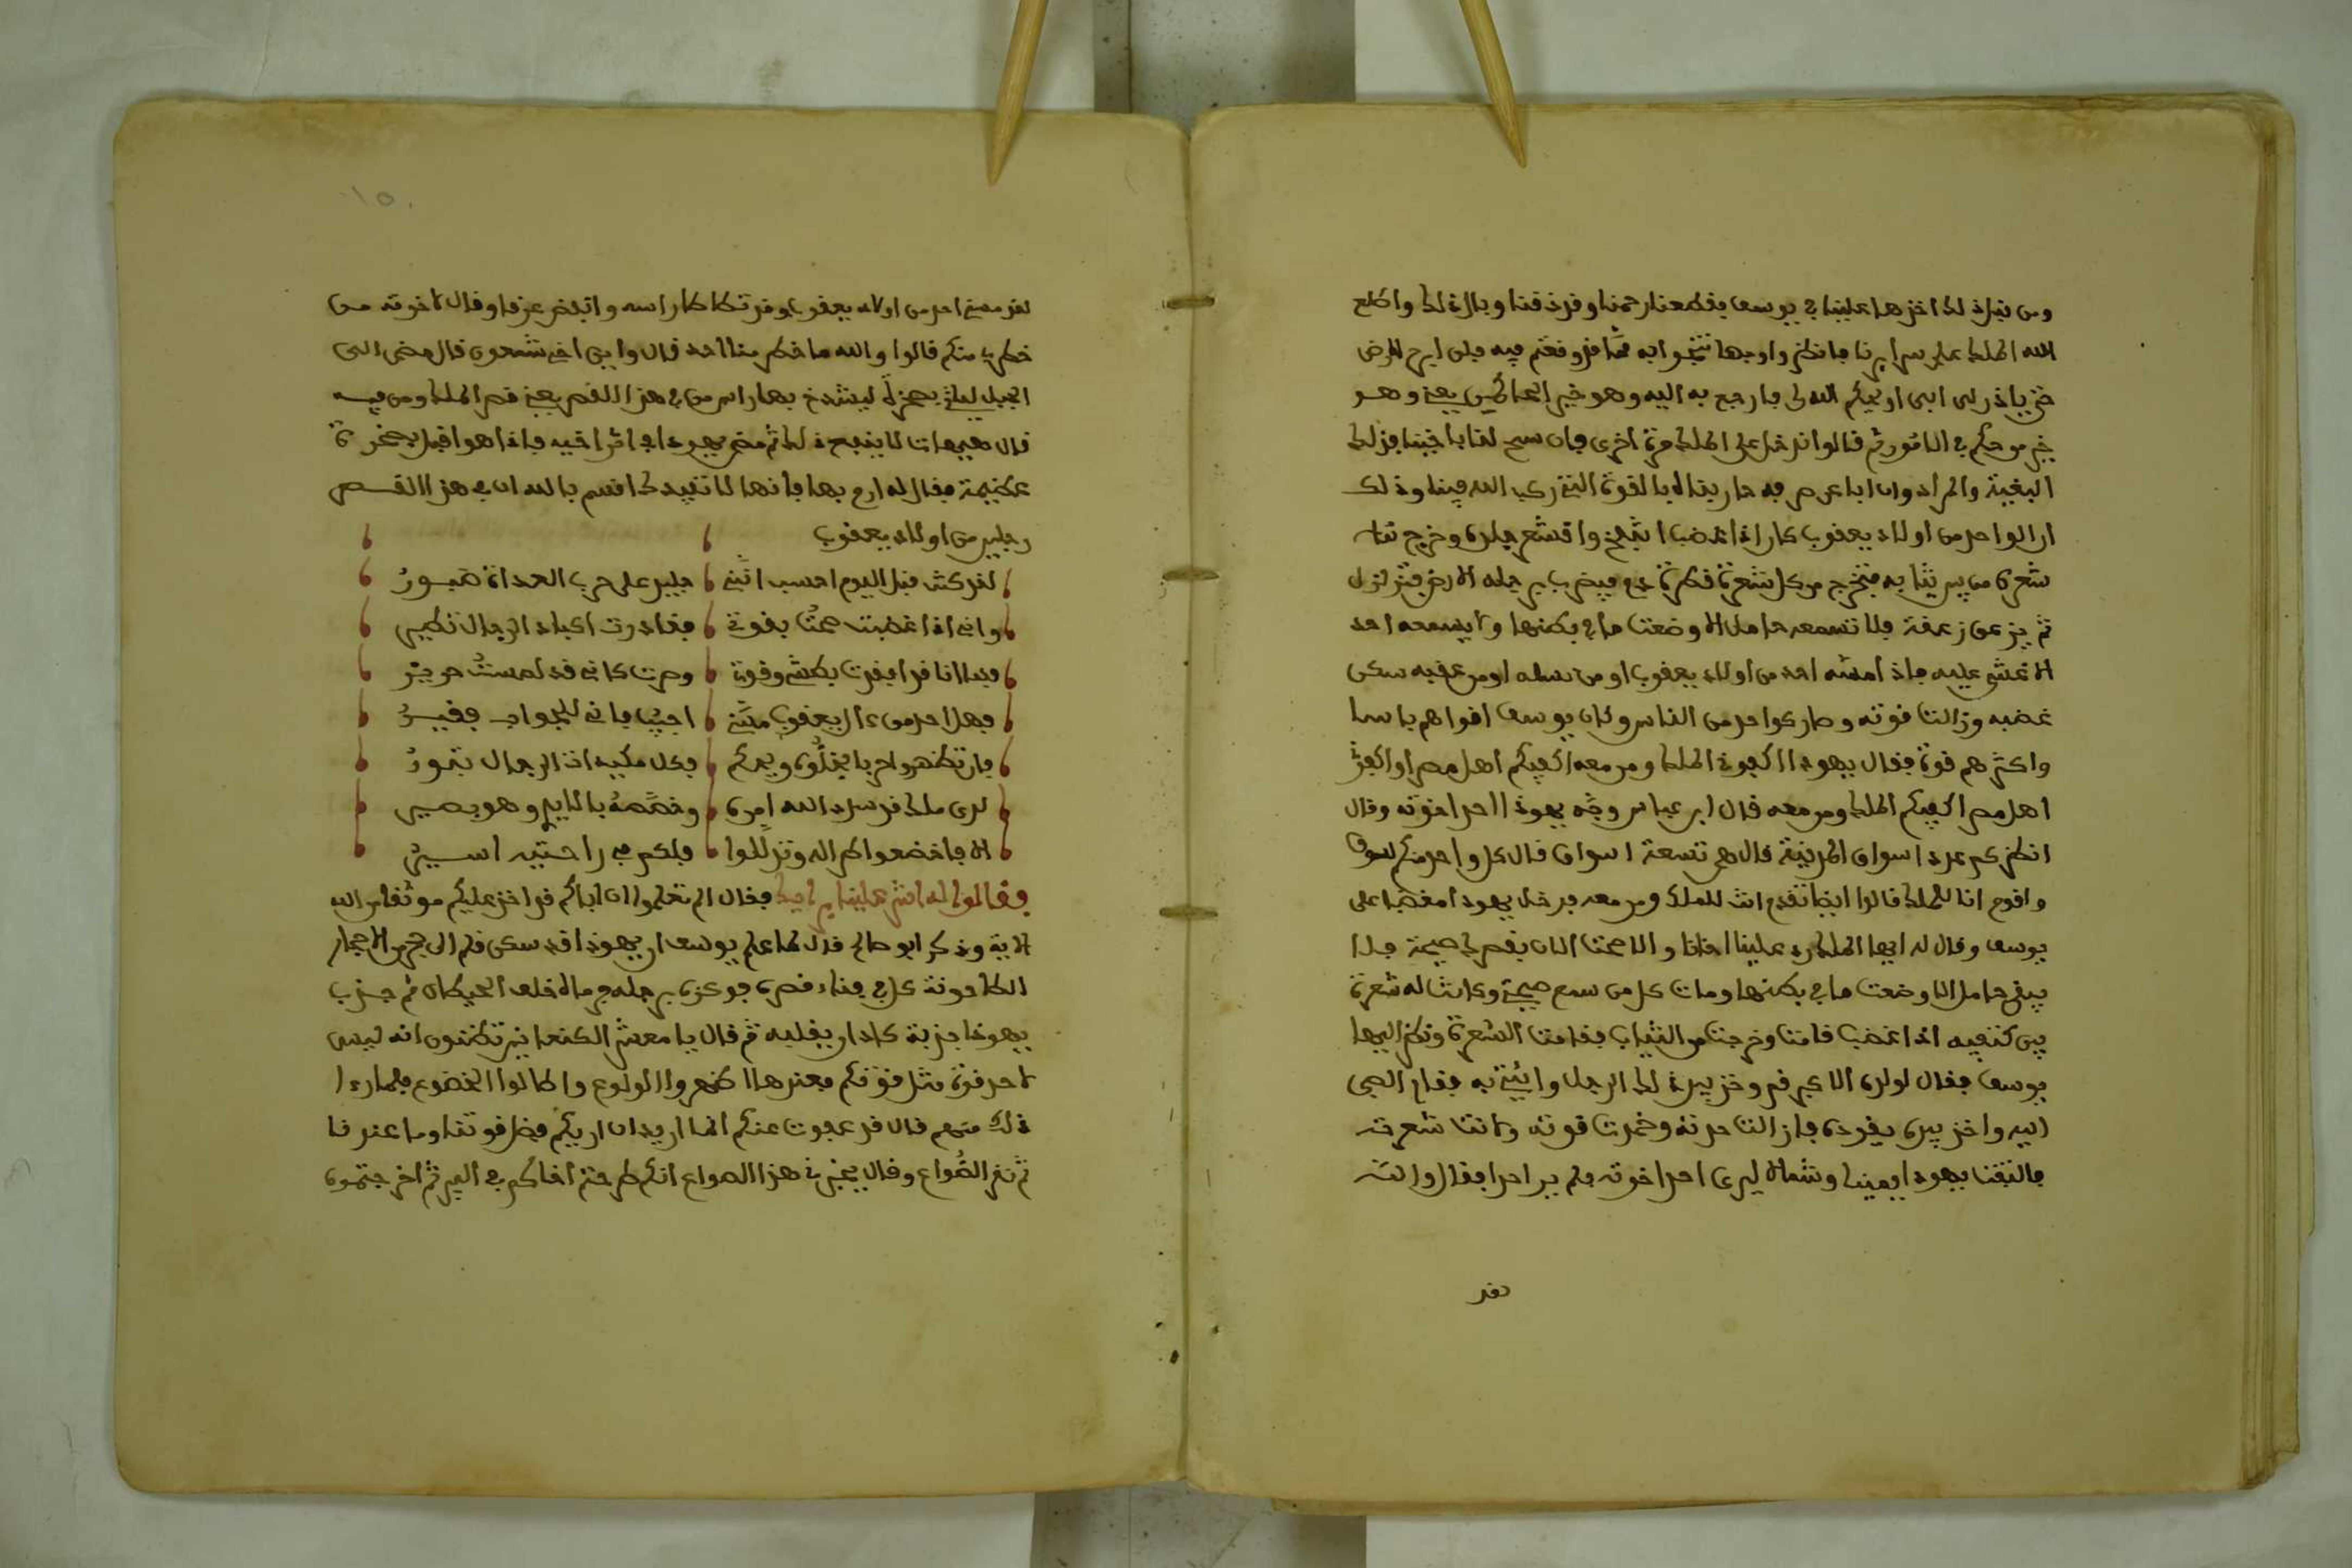 ومن قبل ذلك اخذها علينا في يوسف بقطعنا رحمنا وفرقنا وبالا ذلك واطلع
الله الملك على سرايرنا فانظروا وجها تنجوا به مما قد وقعتم فيه فلن ابرح الارض
حتى ياذن لي ابي او يحكم الله لي فارجع به اليه وهو خير الحاكمين يعني وهو
خير من حكم في الامور ثم قالوا ندخل على الملك مرة اخرى فان سمح لنا باخينا فذلك
البغية والمراد وان ابا عن حاربناه بالقوة التي ركب الله فينا وذلك
ان الواحد من اولاد يعقوب كان اذا غضب انتفخ واقشعر جلده وخرج
شعره من بين ثيابه فتخرج من كل شعرة قطرة دم فيضرب برجله الارض فتزلزل
ثم يزعق زعقة فلا تسمعه حامل الا وضعت ما في بطنها ولا يسمعه احد
الا غشي عليه فاذا مسه احد من اولاد يعقوب او من نسله او من عقبه سكن
غضبه وزالت قوته وصار كواحد من الناس وكان يوسف اقواهم باسا
واكثرهم قوة فقال يهوذا اكفوني الملك ومن معه اكفيكم اهل مصر او اكفوني
اهل مصر اكفيكم الملك ومن معه قال ابن عباس وجه يهوذا احد اخوته وقال
انظر كم عدد اسواق المدينة قال هي تسعة اسواق قال كل واحد منكم لسوق
واقوم انا للملك قالوا ايضا تقدم انت للملك ومن معه فدخل يهوذا مغضبا على
يوسف وقال له ايها الملك رد علينا اخانا والا صحت الان بقصرك صيحة فلا
يبقى حامل الا وضعت ما في بطنها ومات كل من سمع صيحتي وكانت له شعرة
بين كتفيه اذا غضب قامت وخرجت من الثياب فقامت الشعرة ونظر اليها
يوسف فقال لولده الاكبر قم وخذ بيد ذلك الرجل وايتني به فقام الصبي
اليه واخذ بيده يقوده فزالت حدته وخمدت قوته وكانت شعرته
فالتفت يهوذا يمينا وشمالا ليرى احد اخوته فلم ير احدا فقال والله
لقد
لقد مسني احد من اولاد يعقوب وقد تطاطا راسه واتبض عرقا وقال لاخوته من
خطر بي منكم قالوا والله ما خطر منا احد قال واين اخي شمعون قال مضى الى
الجبل لياتي بصخرة ليشدخ بها راس من في هذا القصر يعني قصر الملك ومن فيه
قال هيهات لا ينفع ذلك ثم مضى يهوذا في اثر اخيه فاذا هو اقبل بصخرة
عظيمة فقال له ارم بها فانها لا تفيدك اقسم بالله ان في هذا القصر
رجلين من اولاد يعقوب
لقد كنت قبل اليوم احسب انني ، جليد على حرب العداة صبور
واني اذا غضبت صحت بقوتي ، فغادرت اكباد الرجال تطير
فها انا قد ابقرت بطشي وقوتي ، وصرت كاني قد لمست حرير
فهل احد من ءال يعقوب مسني ، اجيبوا فاني للجواب فقير
فان تظهروا حربا تخلوه ويحكم ، فكل مكيدات الرجال تبور
لدى ملك قد سدد الله امره ، وخصصه بالايد وهو بصير
الا فاخضعوا لامر الاله وتذللوا ، فكلكم في راحتيه اسير
فقالوا له اشر علينا برايك فقال الم تعلموا ان اباكم قد اخذ عليكم موثقا من الله
الاية وذكر ابو صالح قال لما علم يوسف ان يهوذا قد سكن قام الى حجر من الاحجار
الطاحونة كان في فناء قصره فوكزه برجله فرماه خلف الحيطان ثم جذب
يهوذا جذبة كاد ان يقلبه ثم قال يا معشر الكنعانيين تظنون انه ليس
لاحد قوة مثل قوتكم فعندها اظهروا الولوع واطالوا الخضوع فلما راى
ذلك منهم قال قد عفوت عنكم انما اريد ان اريكم فضل قوتنا وما عندنا
ثم نقر الصواع وقال يخبرني هذا الصواع انكم طرحتم اخاكم في البير ثم اخرجتموه